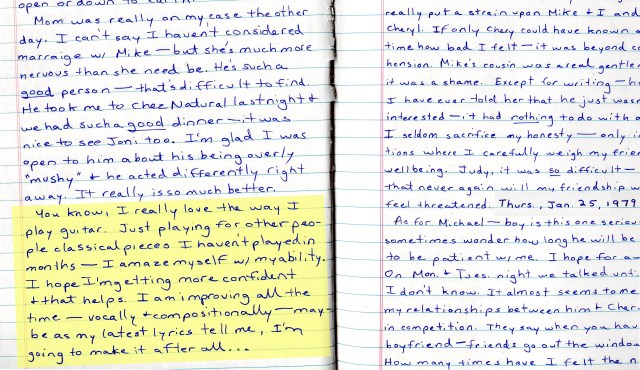 open or down to earth.
Mom was really on my case the other
day. I can't say I haven't considered
marraige w/ Mike — but she's much more
nervous than she need be. He's such a
good person — that's difficult to find.
He took me to Chez Natural last night &
we had such a good dinner — it was
nice to see Joni too. I'm glad I was
open to him about his being overly
"mushy" & he acted differently right
away. It really is so much better.
You know, I really love the way I
play guitar. Just playing for other peo-
ple classical pieces I haven't played in
months — I amaze myself w/ my ability.
I hope I'm getting more confident
& that helps. I am improving all the
time — vocally & compositionally — may-
be as my latest lyrics tell me, I'm
going to make it after all...
really put a strain upon Mike & I and
Cheryl. If only Chery could have known
time how bad I felt — it was beyond
hension. Mike's cousin was a real gentle
it was a shame. Except for writing —
I have ever told her that he just was
interested — it had nothing to do with
I seldom sacrifice my honesty — only
tions where I carefully weigh my frien
wellbeing. Judy, it was so difficult —
that never again will my friendship w
feel threatened. Thurs., Jan. 25, 1979
As for Michael — boy is this one seriou
sometimes wonder how long he will be
to be patient w/ me. I hope for a
On Mon. & Tues. night we talked unti
I don't know. It almost seems to me
my relationships between him & Cher
in competition. They say when you hav
boyfriend — friends go out the window
How many times have I felt the n